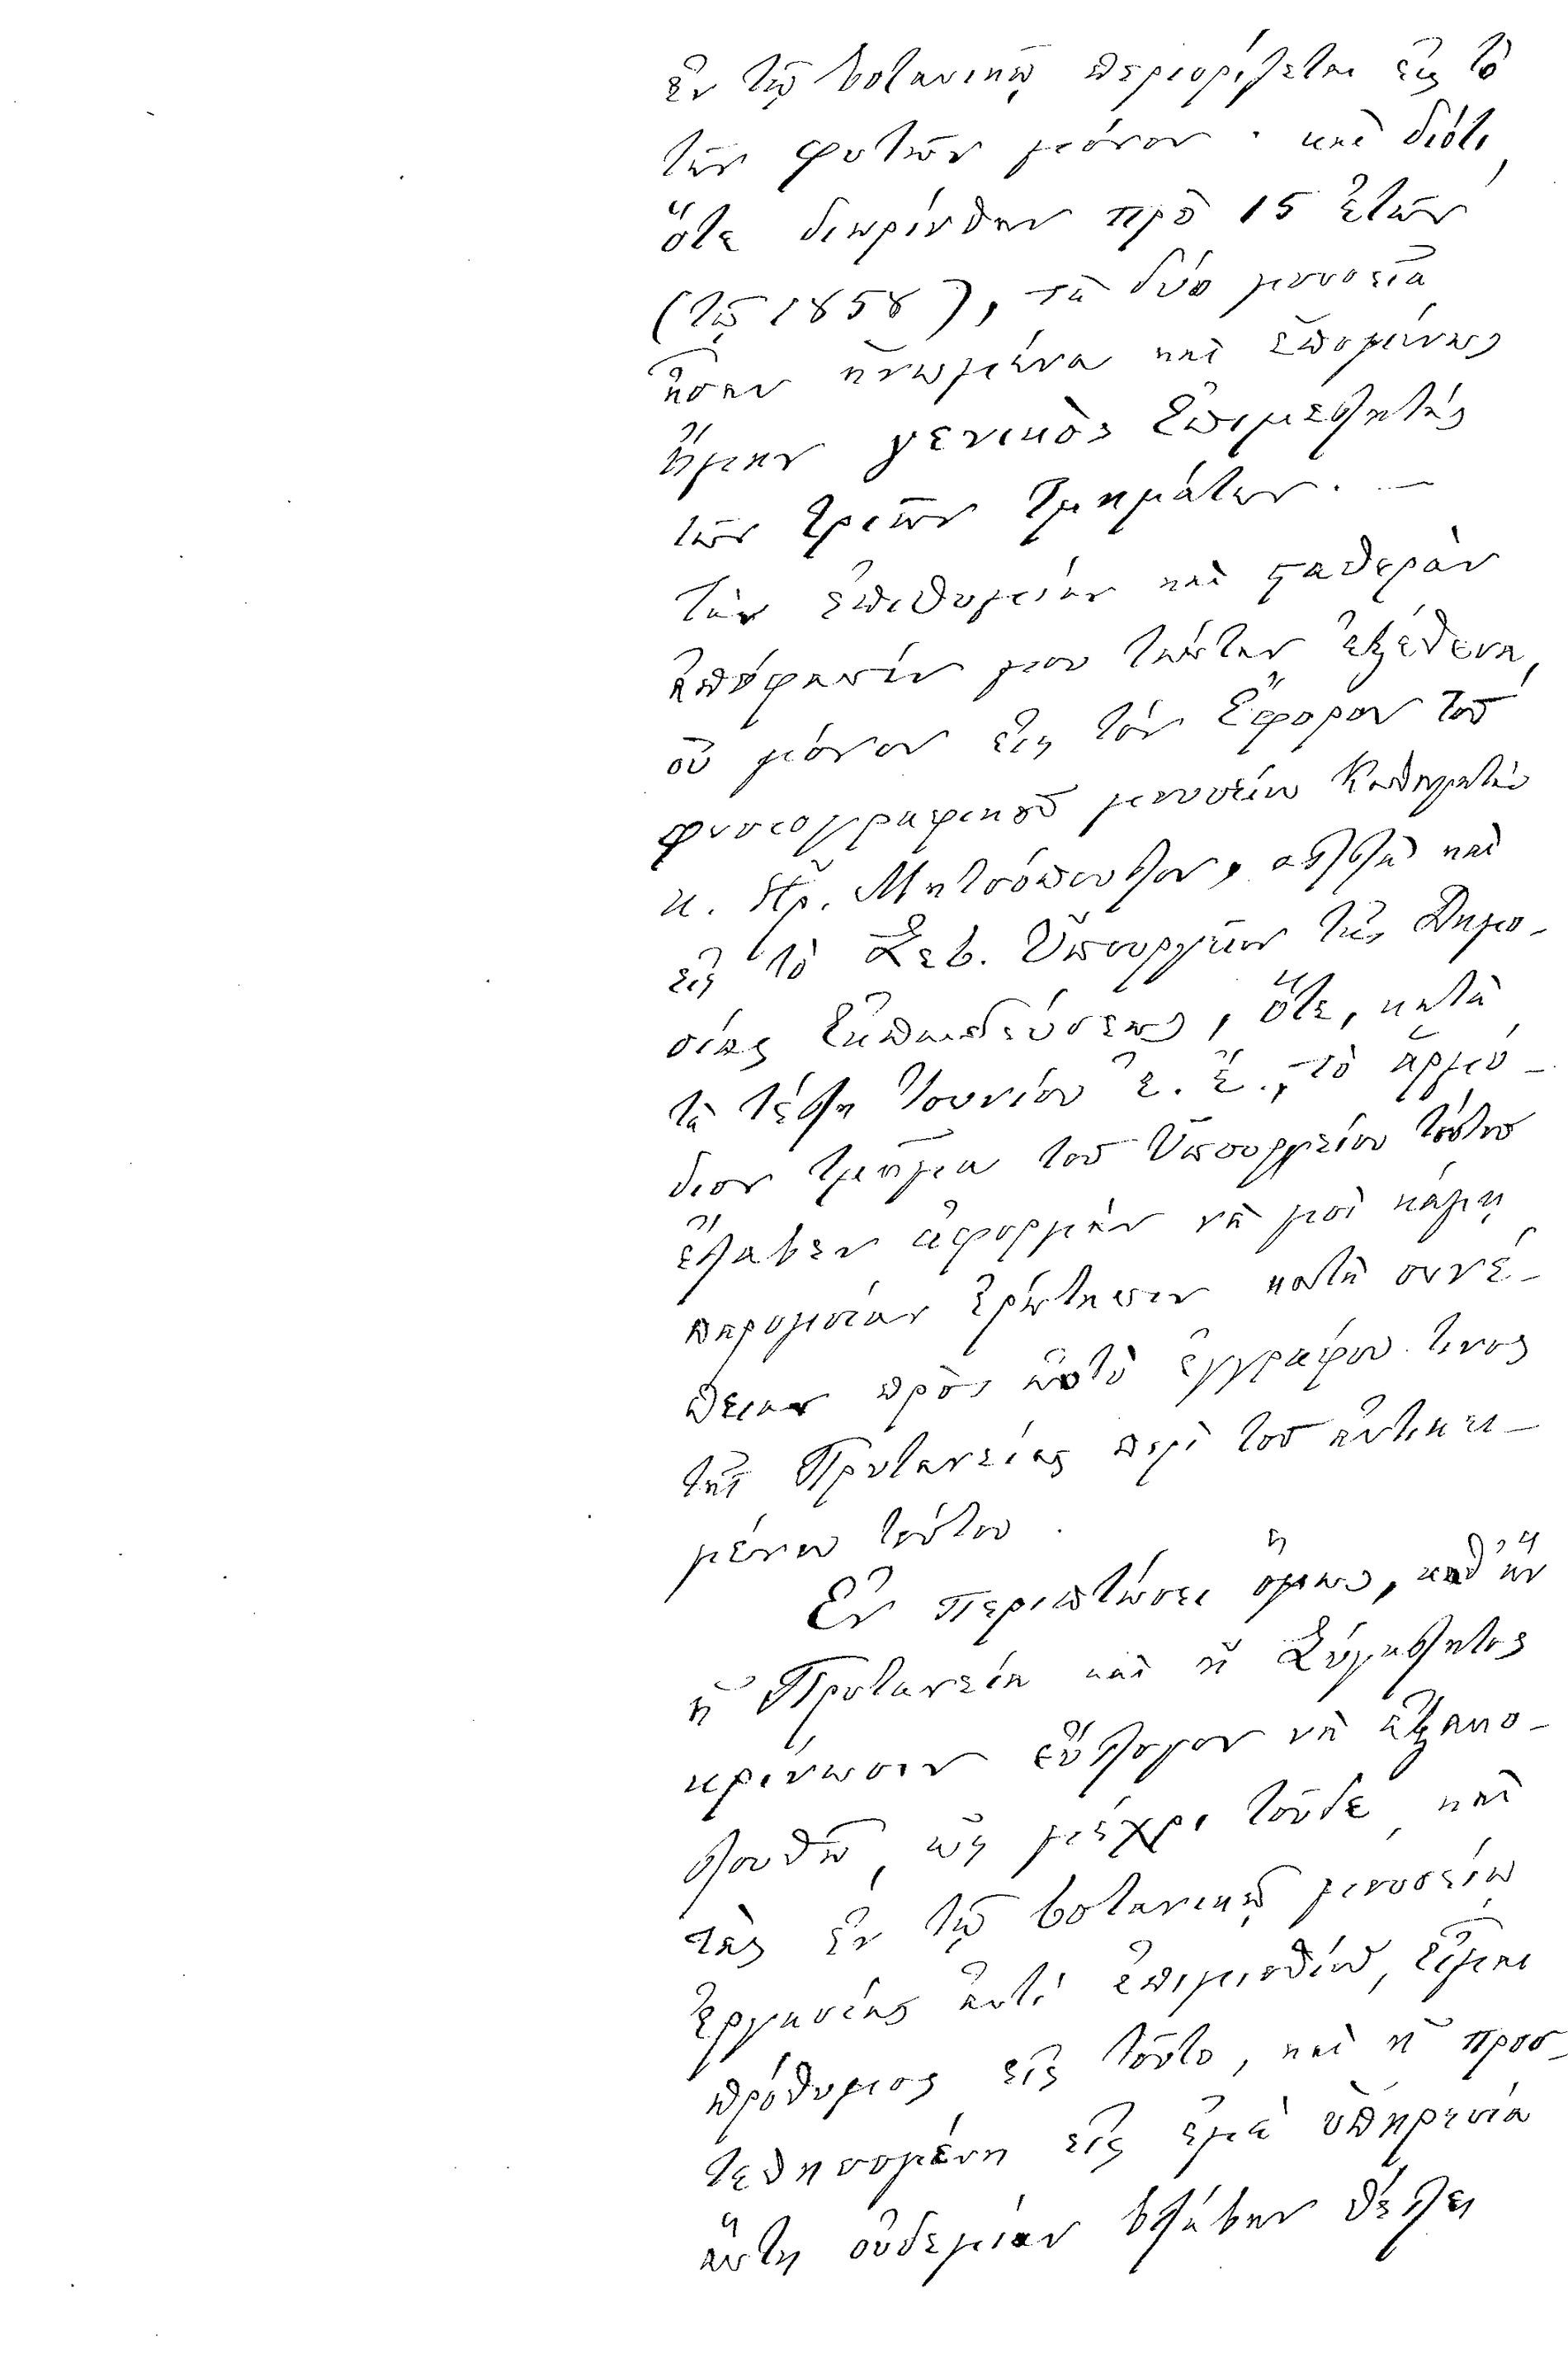 ἐν τῷ βοτανικῷ περιορίζεται εἰς τὸ
τῶν φυτῶν μόνον · καὶ διότι,
ὅτε διωρίσθην πρὸ 15 ἐτῶν
(τῷ 1858), τὰ δύο μουσεῖα
ἦσαν ἡνωμένα καὶ ἑπομένως
ἤμην γενικὸς Ἐπιμελητὴς
τῶν τριῶν τμημάτων. —
Τὴν ἐπιθυμίαν καὶ σταθερὰν
ἀπόφασίν μου ταύτην ἐξέθεσα,
οὐ μόνον εἰς τὸν Ἔφορον τοῦ
φυσιογραφικοῦ μουσείου Καθηγητὴν
κ. Ἡρ. Μητσόπουλον, ἀλλὰ καὶ
εἰς τὸ Σεβ. Ὑπουργεῖον τῆς Δημο-
σίας Ἐκπαιδεύσεως, ὅτε, κατὰ
τὰ τέλη Ἰουνίου ἐ. ἔ., τὸ ἁρμό-
διον τμῆμα τοῦ Ὑπουργείου τούτου
ἔλαβεν ἀφορμὴν νὰ μοὶ κάμῃ
παρομοίαν ἐρώτησιν κατὰ συνέ-
πειαν πρὸς αὐτὸ ἐγγράφου τινος
τῆς Πρυτανείας περὶ τοῦ ἀντικει-
μένου τούτου.
Ἐν περιπτώσει ὅμως, καθ' ἣν
ἡ Πρυτανεία καὶ ἡ Σύγκλητος
κρίνωσιν εὔλογον νὰ ἐξακο-
λουθῶ, ὡς μέχρι τοῦδε, καὶ
τὰς ἐν τῷ βοτανικῷ μουσείῳ
ἐργασίας ἀντὶ ἐπιμισθίου, εἶμαι
πρόθυμος εἰς τοῦτο, καὶ ἡ προσ-
τεθησομένη εἰς ἐμὲ ὑπηρεσία
αὕτη οὐδεμίαν βλάβην θέλει